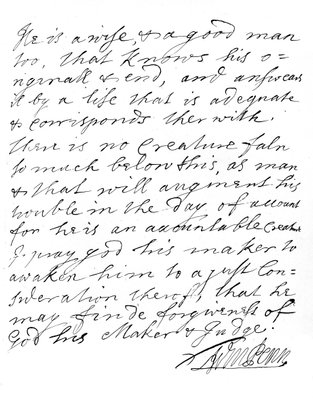 He is a wise, & a good man
too, that knows his o-
riginall & end, and answears
it by a life that is adequate
& corrisponds therwith.
ther is no Creature faln
so much below this, as man
& that will augment his
trouble in the day of account
for he is an accountable Creature
I pray god his maker to
awaken him to a just Con-
sideration therof, that he
may finde forgiveness of
God his Maker & Judge.
Wm Penn